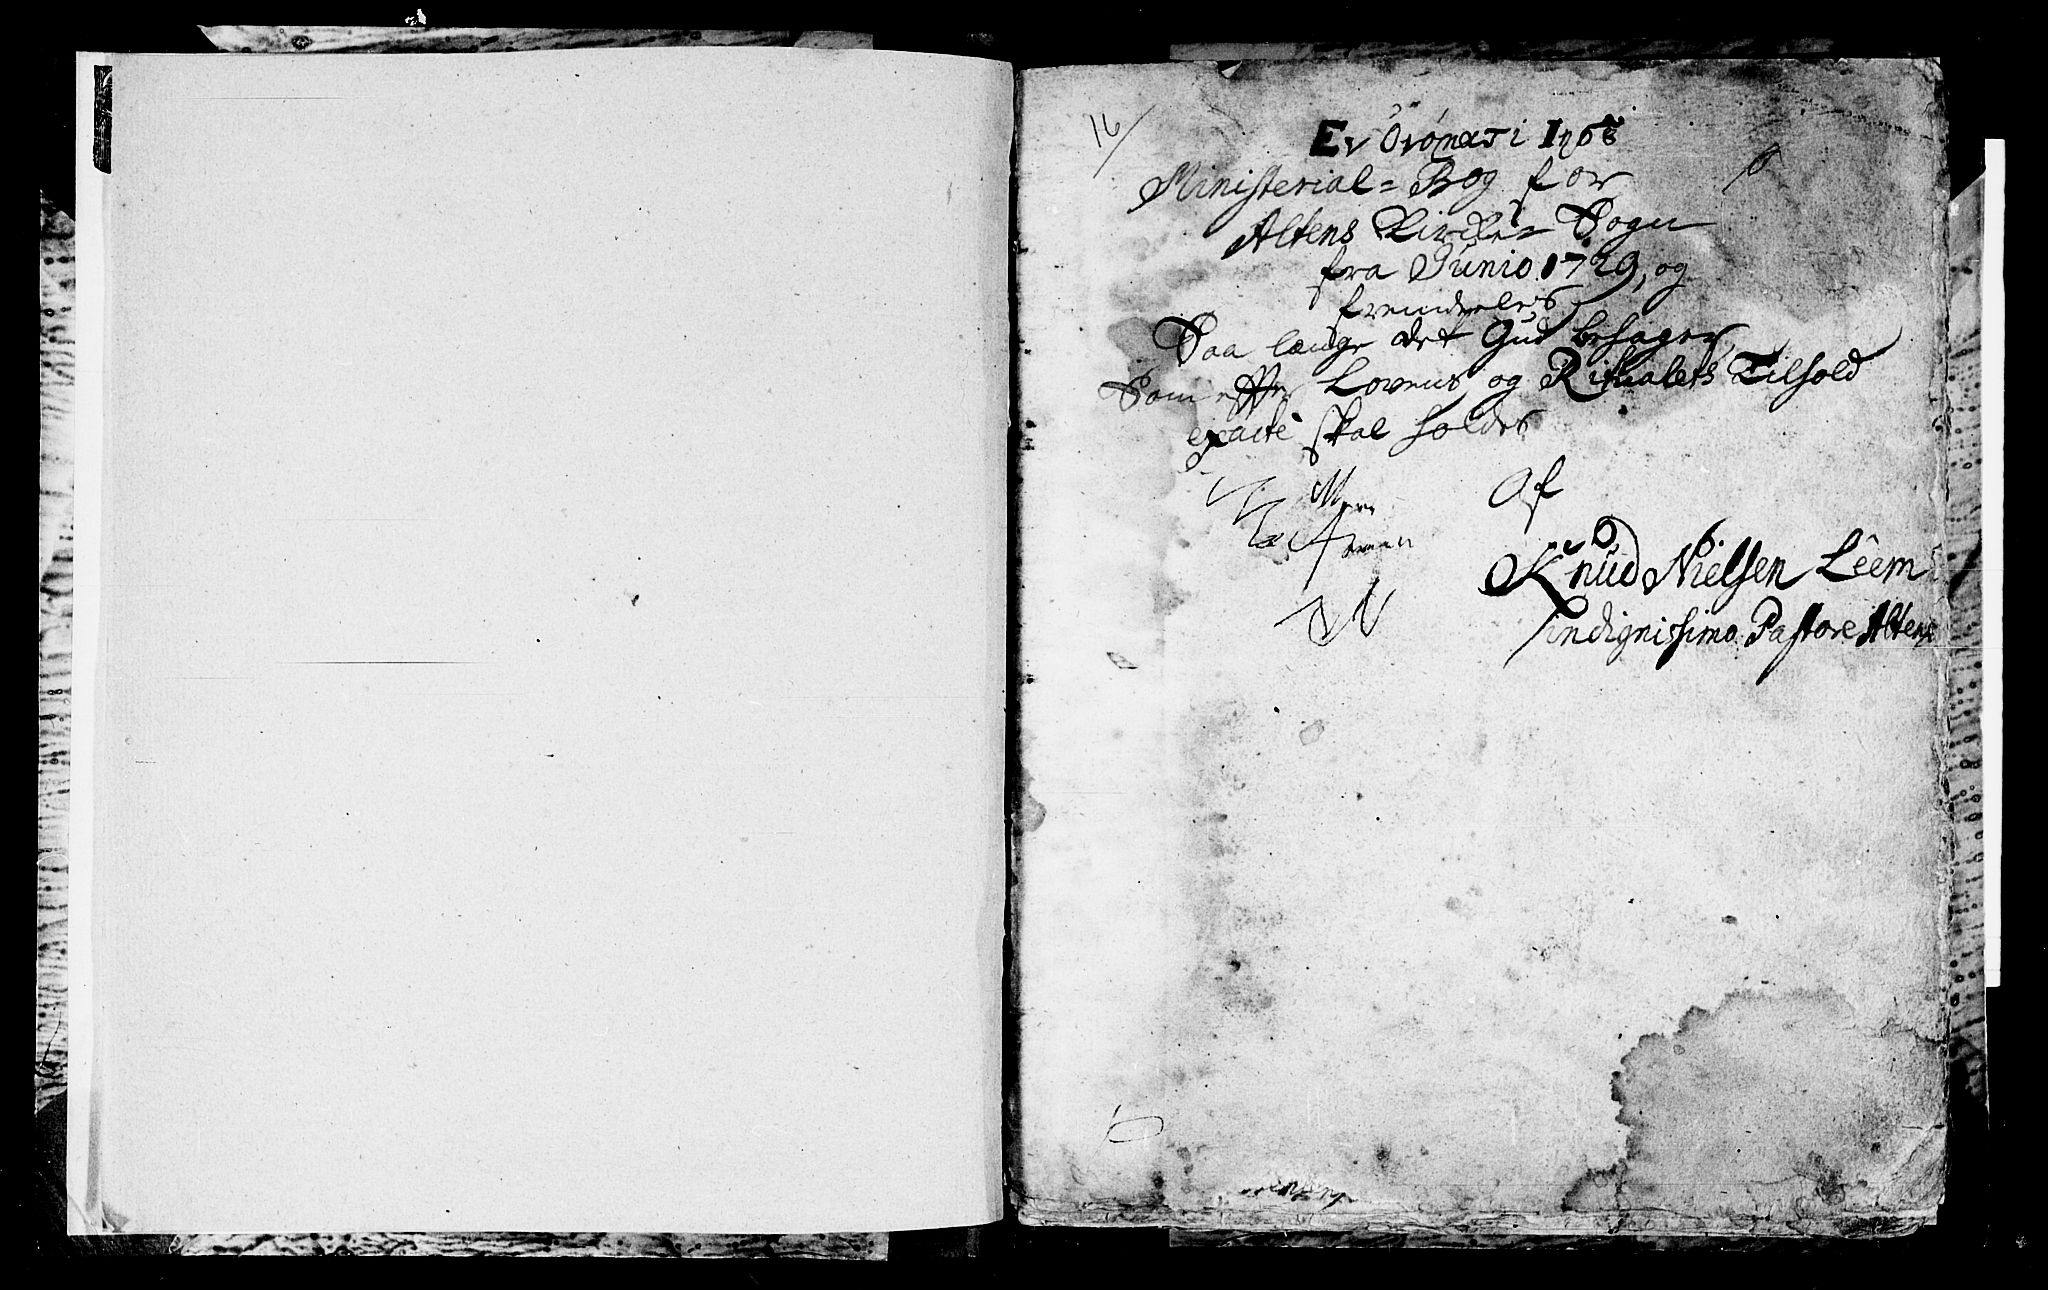 16
Ministerial=Bog for
Altens Kircke=Sogn
fra Junio 1729, og
fremdeeles
Saa længe det Gud behager,
Som efter Lovens og Ritualets Tilhold
exacte skal holdes
Af
Knud Nielsen Leem
indignissimo Pastore Altens